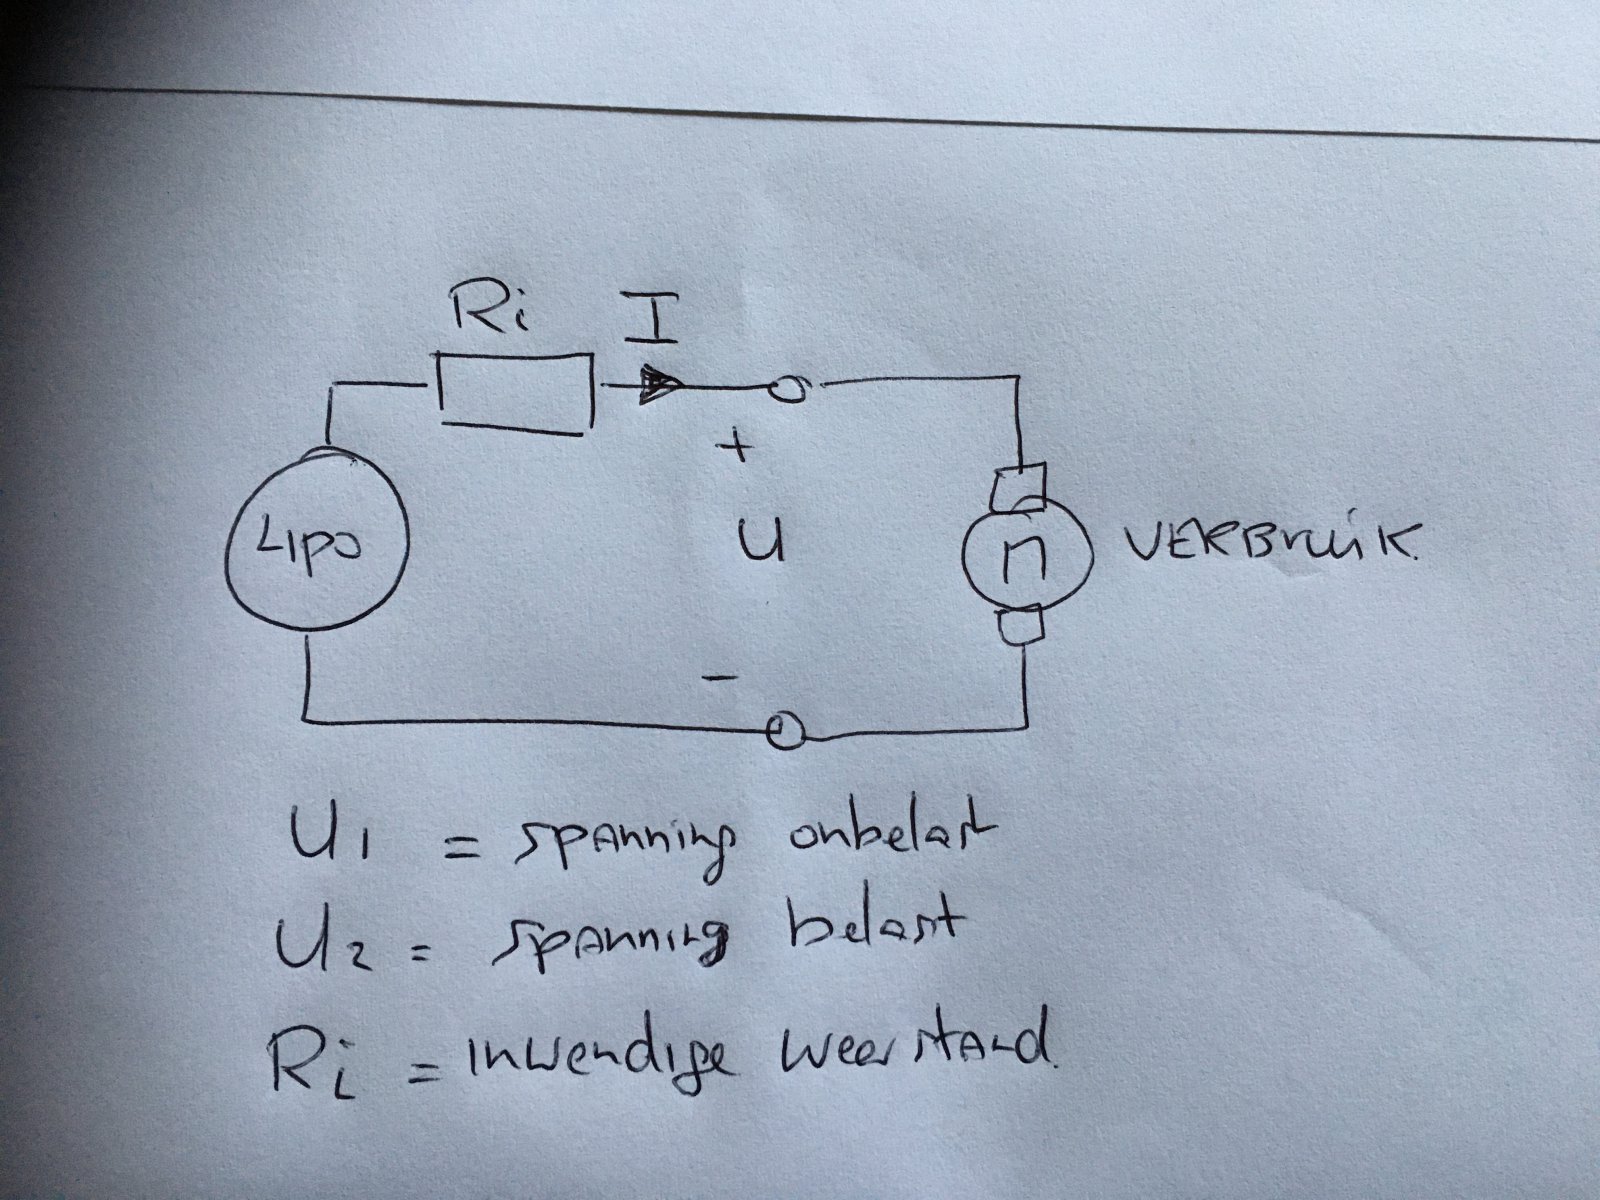 Ri I
+
LIPO U n VERBRUIK
-
U1 = spanning onbelast
U2 = spanning belast
Ri = inwendige weerstand